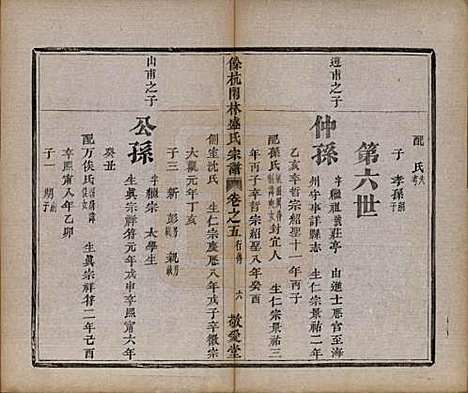 配氏失考
子 孝孫
第六世
遵甫之子
仲孫 字繼祖號莊亭 由進士歷官至海
州守事詳縣志 生仁宗景祐二年
乙亥辛哲宗紹聖十一年丙子
配孫氏 封宜人 生仁宗景祐
年丙子辛哲宗紹聖八年癸酉
側室沈氏 生仁宗慶曆八年辛徽宗
大觀元年丁亥
子三 新 彭 親
餘杭閑林盛氏宗譜 卷之五 行傳 六 敬愛堂
山甫之子
公孫 字繼宗 太學生
生眞宗祥符元年戊申辛熙甯六年
癸丑
配万俟氏 生眞宗祥符二年己酉
辛熙甯八年乙卯
子一 朔